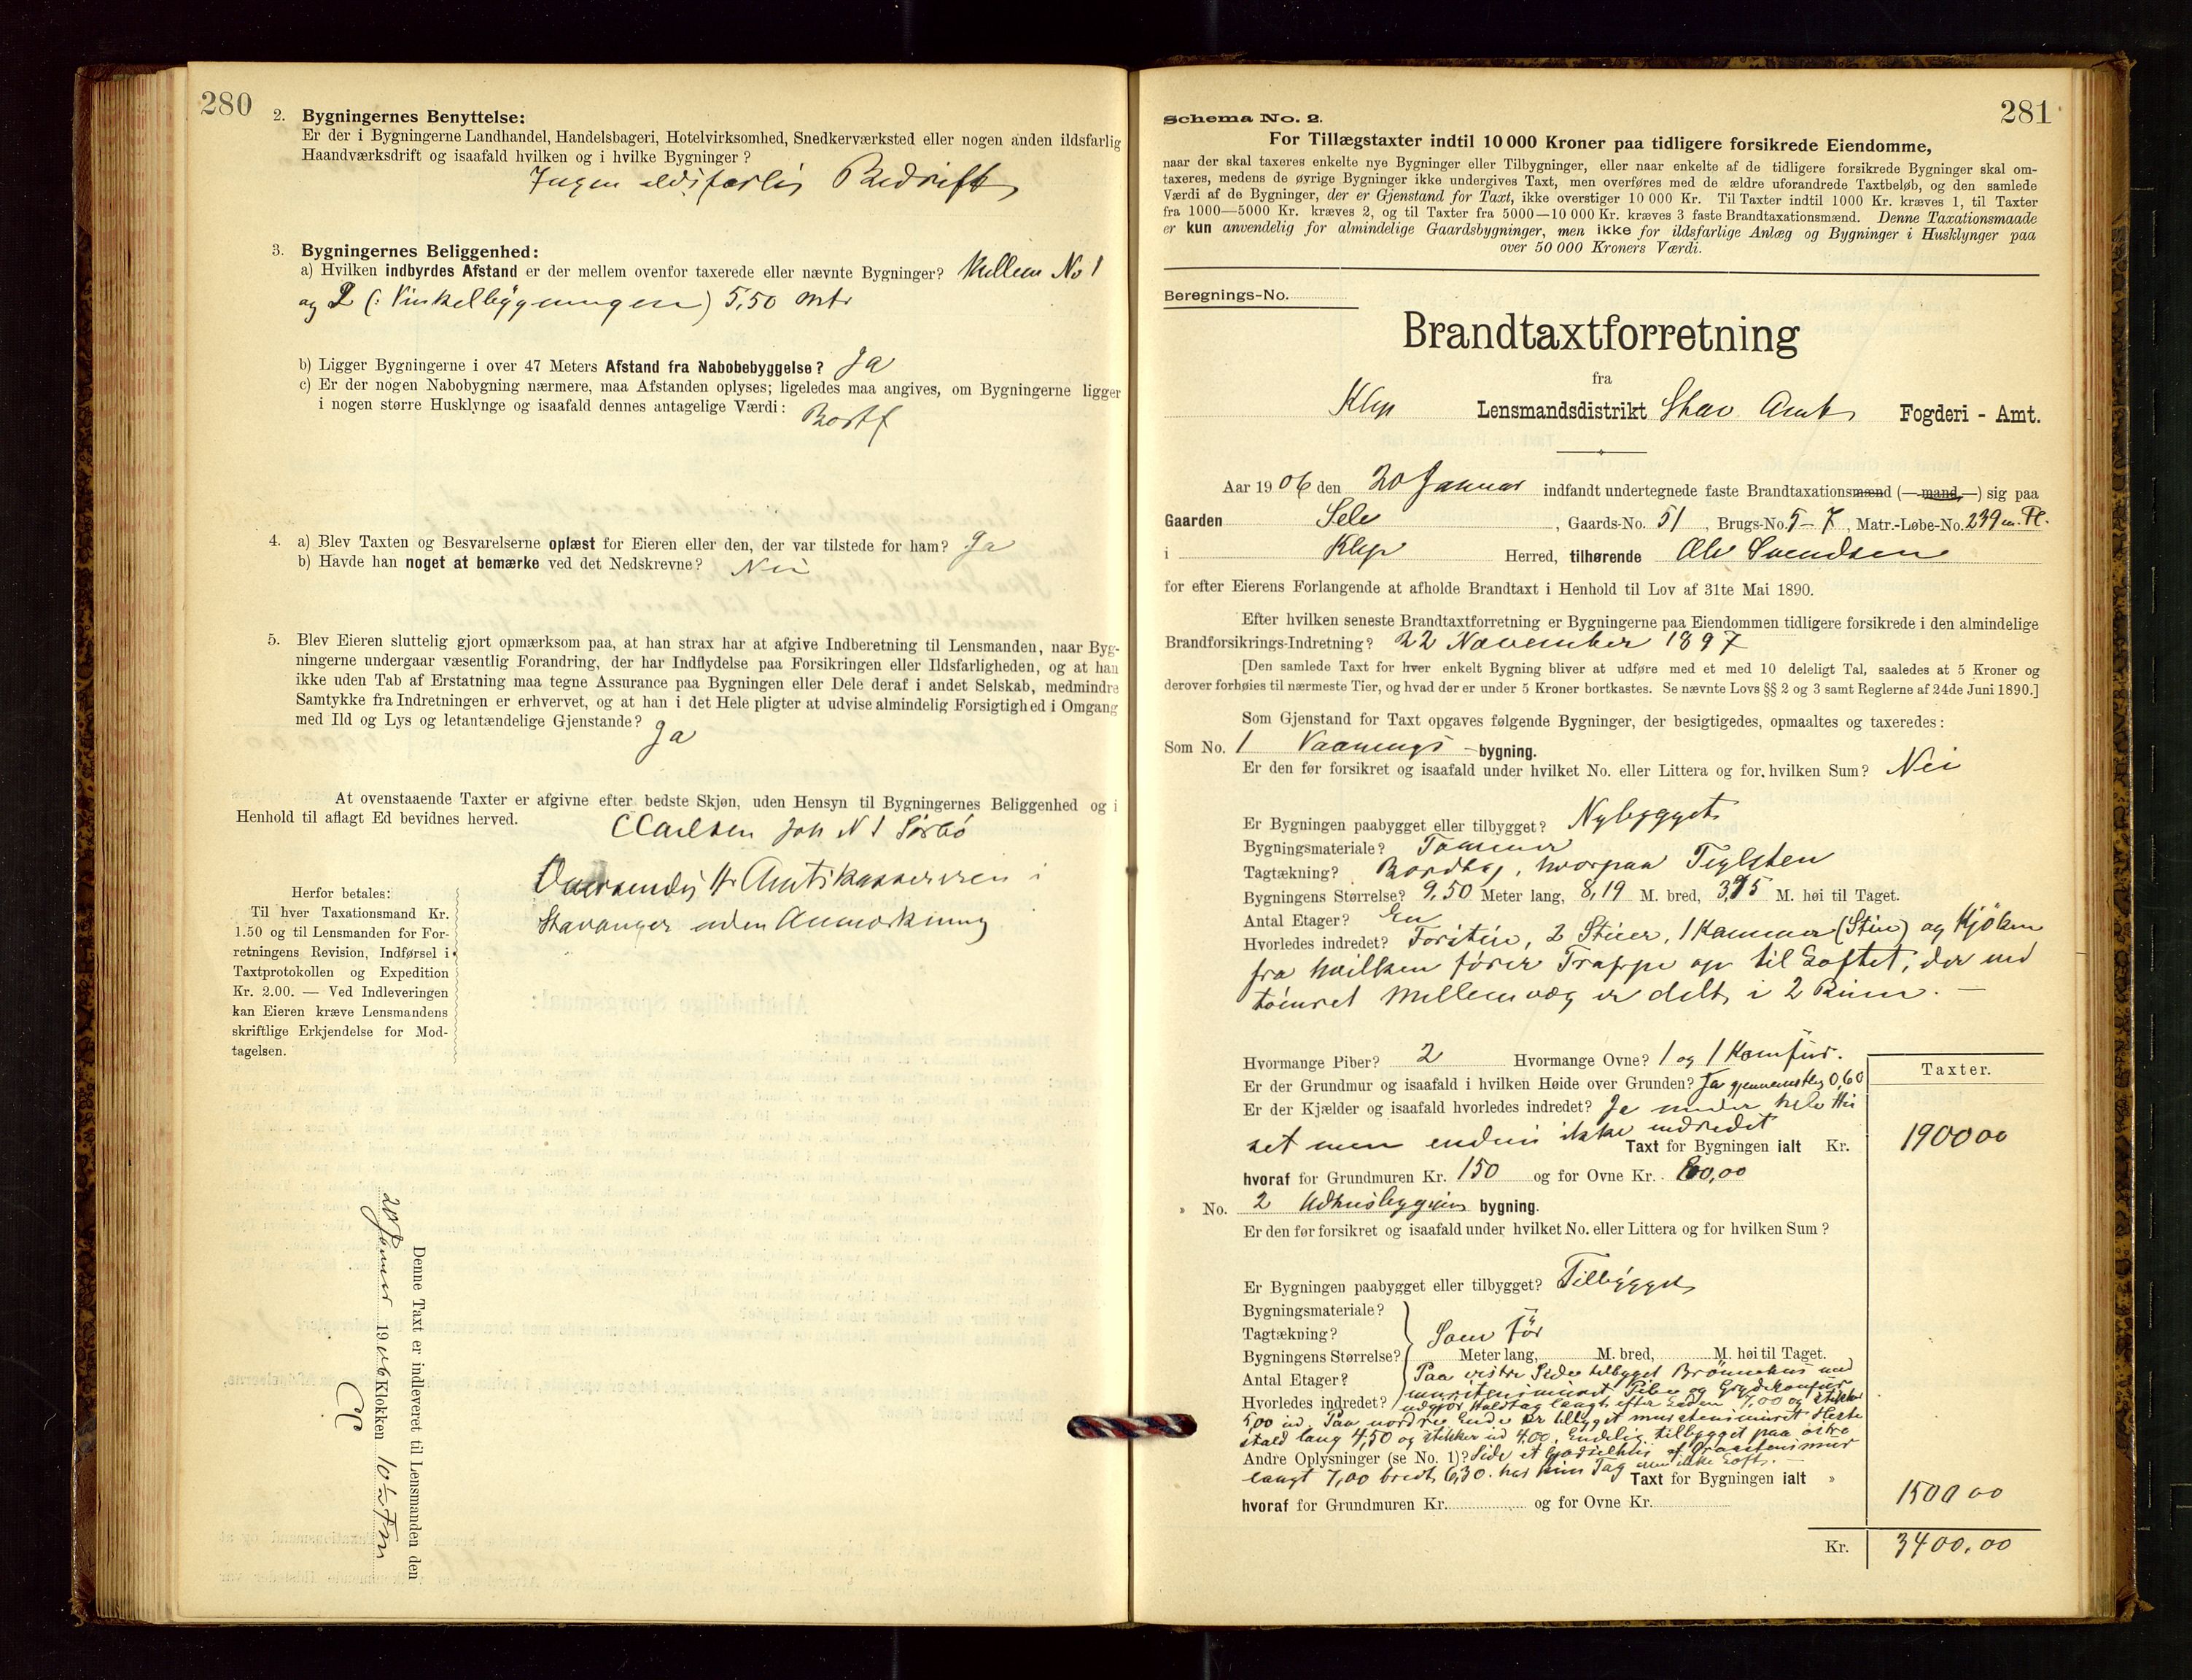 280
2. Bygningernes Benyttelse:
Er der i Bygningerne Landhandel, Handelsbageri, Hotelvirksomhed, Snedkerværksted eller nogen anden ildsfarlig
Haandværksdrift og isaafald hvilken og i hvilke Bygninger?
Ingen ildsfarlig Bedrift
3. Bygningernes Beliggenhed:
a) Hvilken indbyrdes Afstand er der mellem ovenfor taxerede eller nævnte Bygninger? Mellem No 1
og 2 (: Vinkelbygningen) 5,50 mtr
b) Ligger Bygningerne i over 47 Meters Afstand fra Nabobebyggelse? Ja
c) Er der nogen Nabobygning nærmere, maa Afstanden oplyses; ligeledes maa angives, om Bygningerne ligger
i nogen større Husklynge og isaafald dennes antagelige Værdi: Bortf
4. a) Blev Taxten og Besvarelserne oplæst for Eieren eller den, der var tilstede for ham? Ja
b) Havde han noget at bemærke ved det Nedskrevne? Nei
5. Blev Eieren sluttelig gjort opmærksom paa, at han strax har at afgive Indberetning til Lensmanden, naar Byg-
ningerne undergaar væsentlig Forandring, der har Indflydelse paa Forsikringen eller Ildsfarligheden, og at han
ikke uden Tab af Erstatning maa tegne Assurance paa Bygningen eller Dele deraf i andet Selskab, medmindre
Samtykke fra Indretningen er erhvervet, og at han i det Hele pligter at udvise almindelig Forsigtighed i Omgang
med Ild og Lys og letantændelige Gjenstande? Ja
At ovenstaaende Taxter er afgivne efter bedste Skjøn, uden Hensyn til Bygningernes Beliggenhed og i
Henhold til aflagt Ed bevidnes herved.
C Carlsen Joh N S Sørbö
Oversendes Hr Amtskassereren i
Stavanger uden Anmærkning
Herfor betales:
Til hver Taxationsmand Kr.
1.50 og til Lensmanden for For-
retningens Revision, Indførsel i
Taxtprotokollen og Expedition
Kr. 2.00. — Ved Indleveringen
kan Eieren kræve Lensmandens
skriftlige Erkjendelse for Mod-
tagelsen.
Denne Taxt er indleveret til Lensmanden den
20 Januar 1906 Klokken 10½ Fm
CC
281
Schema No. 2.
For Tillægstaxter indtil 10 000 Kroner paa tidligere forsikrede Eiendomme,
naar der skal taxeres enkelte nye Bygninger eller Tilbygninger, eller naar enkelte af de tidligere forsikrede Bygninger skal om-
taxeres, medens de øvrige Bygninger ikke undergives Taxt, men overføres med de ældre uforandrede Taxtbeløb, og den samlede
Værdi af de Bygninger, der er Gjenstand for Taxt, ikke overstiger 10 000 Kr. Til Taxter indtil 1000 Kr. kræves 1, til Taxter
fra 1000—5000 Kr. kræves 2, og til Taxter fra 5000—10 000 Kr. kræves 3 faste Brandtaxationsmænd. Denne Taxationsmaade
er kun anvendelig for almindelige Gaardsbygninger, men ikke for ildsfarlige Anlæg og Bygninger i Husklynger paa
over 50 000 Kroners Værdi.
Beregnings-No.
Brandtaxtforretning
fra
Klep Lensmandsdistrikt Stav Amts Fogderi - Amt.
Aar 1906 den 20 Januar indfandt undertegnede faste Brandtaxationsmænd (—mand—) sig paa
Gaarden Sele, Gaards-No. 51, Brugs-No. 5-7, Matr.-Løbe-No. 239 m. Fl.
i Klep Herred, tilhørende Ole Svendsen
for efter Eierens Forlangende at afholde Brandtaxt i Henhold til Lov af 31te Mai 1890.
Efter hvilken seneste Brandtaxtforretning er Bygningerne paa Eiendommen tidligere forsikrede i den almindelige
Brandforsikrings-Indretning? 22 November 1897
[Den samlede Taxt for hver enkelt Bygning bliver at udføre med et med 10 deleligt Tal, saaledes at 5 Kroner og
derover forhøies til nærmeste Tier, og hvad der er under 5 Kroner bortkastes. Se nævnte Lovs §§ 2 og 3 samt Reglerne af 24de Juni 1890.]
Som Gjenstand for Taxt opgaves følgende Bygninger, der besigtigedes, opmaaltes og taxeredes:
Som No. 1 Vaanings-bygning.
Er den før forsikret og isaafald under hvilket No. eller Littera og for hvilken Sum? Nei
Er Bygningen paabygget eller tilbygget? Nybygget
Bygningsmateriale? Tømmer
Tagtækning? Bordtag, hvorpaa Teglsten
Bygningens Størrelse? 9,50 Meter lang, 8,19 M. bred, 3,75 M. høi til Taget.
Antal Etager? En
Hvorledes indredet? Forstue, 2 Stuer, 1 Kammer (Stue) og Kjöken
fra hvilken förer Trappe op til Loftet, der med
tömret Mellemvæg er delt i 2 Rum. —
Hvormange Piber? 2 Hvormange Ovne? 1 og 1 Komfur.
Er der Grundmur og isaafald i hvilken Høide over Grunden? Ja gjennemsteg 0,60
Er der Kjælder og isaafald hvorledes indredet? Ja under hele Hu
set men endnu ikke indredet
Taxt for Bygningen ialt Kr.
Taxter.
1900 00
hvoraf for Grundmuren Kr. 150 og for Ovne Kr. 60,00
» No. 2 Udhusbygnings bygning.
Er den før forsikret og isaafald under hvilket No. eller Littera og for hvilken Sum?
Er Bygningen paabygget eller tilbygget? Tilbygget
Bygningsmateriale?
Tagtækning? Som för
Bygningens Størrelse? Meter lang, M. bred, M. høi til Taget.
Antal Etager? Paa vestre Side tilbygget Brönnehus med
Hvorledes indredet? murstensmuret Pibe og Grydekomfur
udgjör Halvtag langt efter Laden 7,00 og stikker
5,00 ud. Paa nordre Ende er tilbygget murstensmuret Heste
stald lang 4,50 og stikker ud 4,00. Endelig tilbygget paa östre
Andre Oplysninger (se No. 1)? Side et Gjødselhus af Graastensmur
langt 7,00 bredt 6,30. har kun Tag men ikke Loft. —
Taxt for Bygningen ialt »
1500 00
hvoraf for Grundmuren Kr. og for Ovne Kr.
Kr. 3400,00